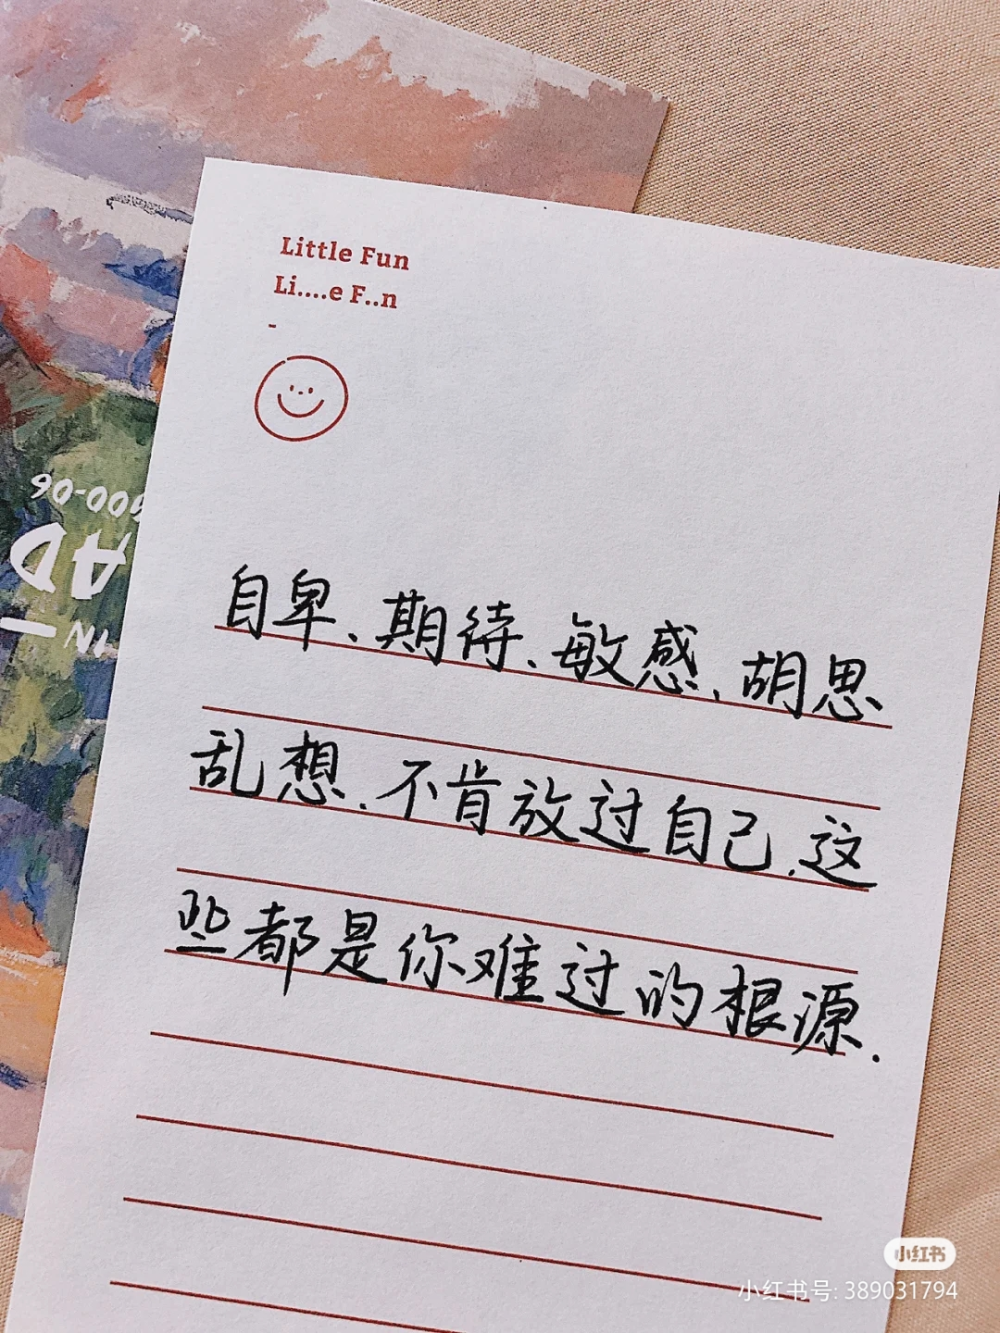 Little Fun
Li....e F..n
-
自卑、期待、敏感、胡思
乱想、不肯放过自己、这
些都是你难过的根源.
900-06
AD
IN
小红书
小红书号: 389031794